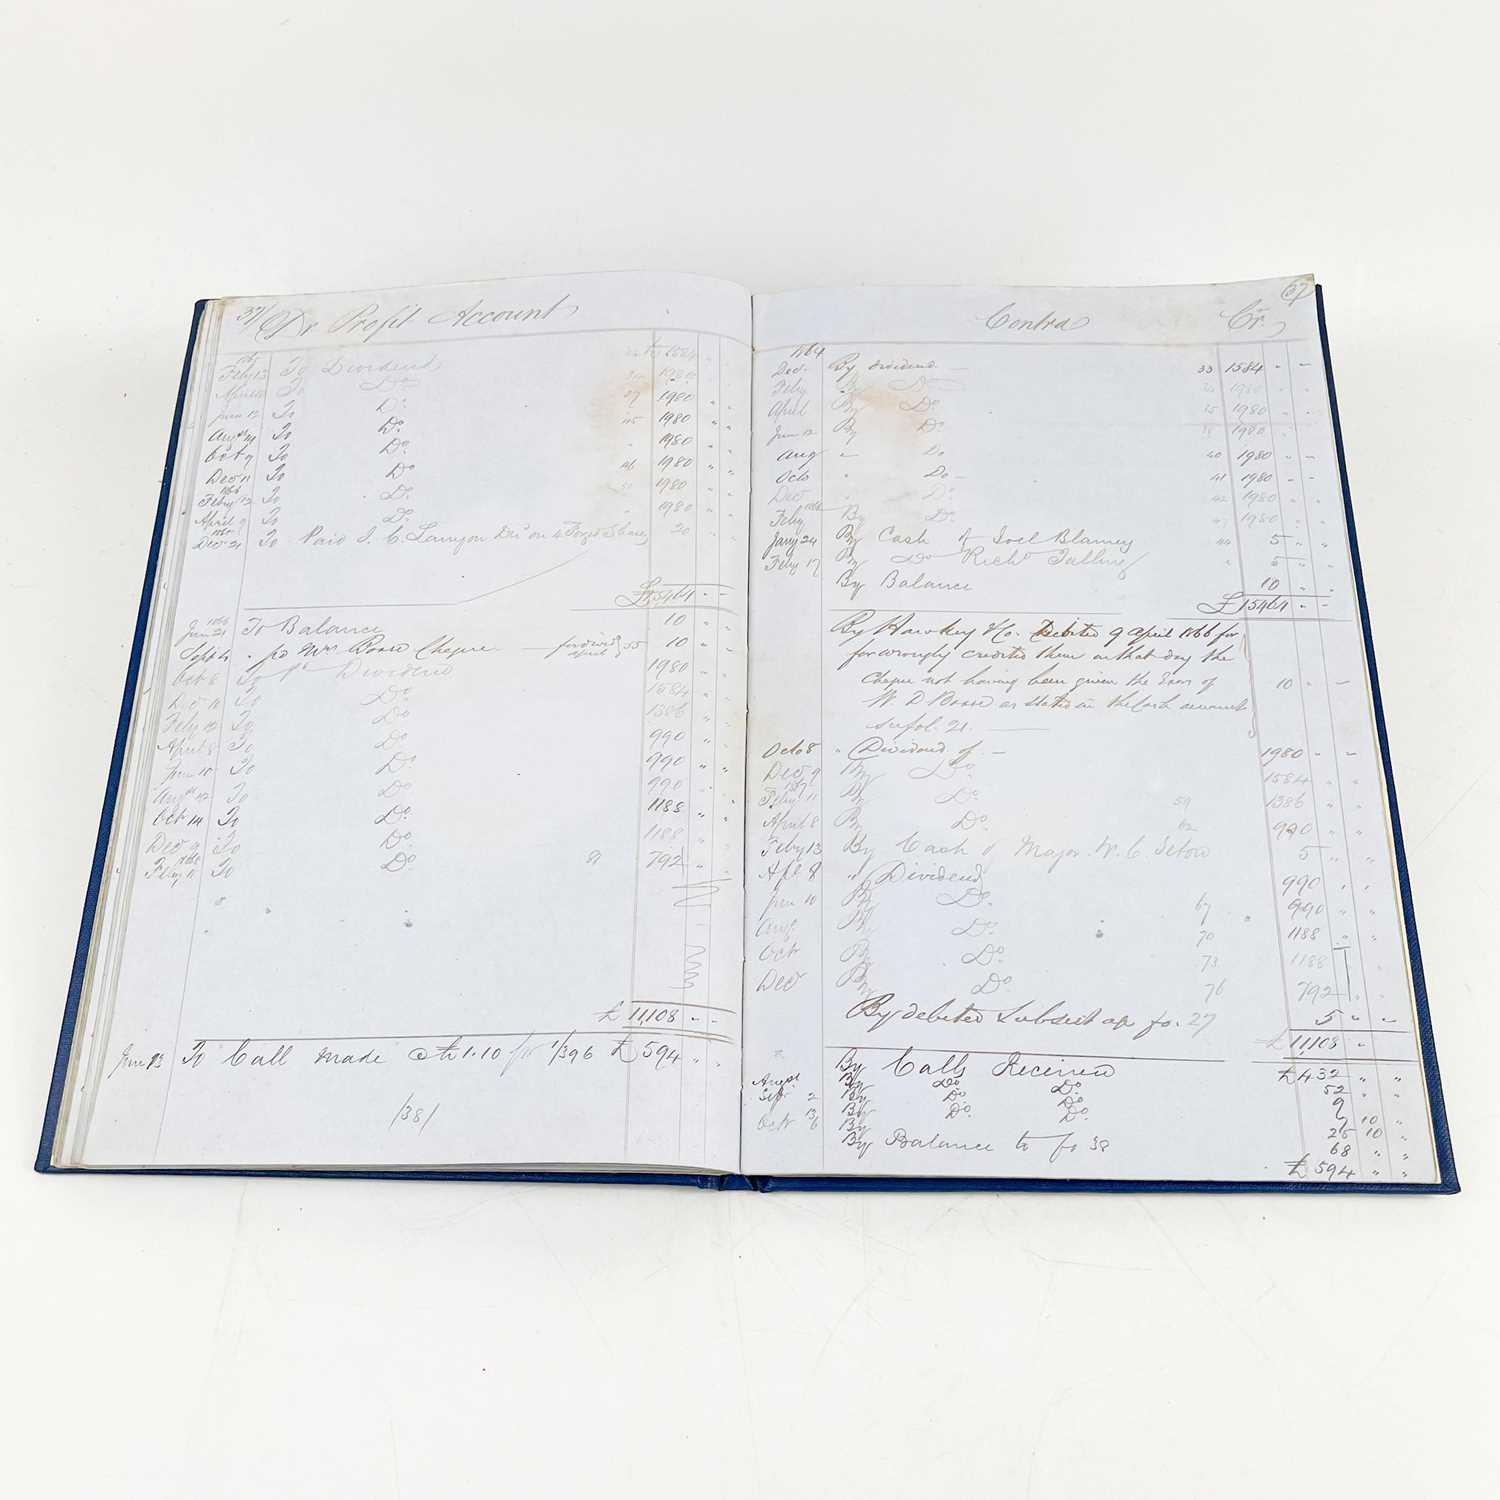 37/ Dr Profit Account
1865 Feby 13 To Dividend 1584 " "
April To Do 1980 " "
June 12 To Do 39 1980 " "
Augst To Do 45 1980 " "
Oct 9 To Do " 1980 " "
Decr 11 To Do 46 1980 " "
1866 Feby 12 To Do 1980 " "
April 9 To Do " 1980 " "
Decr 21 To Paid J. C. Lanyon Divd on 4 Shares 20 " "
£15464 - -
1866 June 21 To Balance 10 " "
Sept 4 " pd Mrs Boase Cheque for divid april 55 10 " "
Oct 8 To Dividend 1980 " "
Decr 10 To Do 1584 " "
Feby 12 To Do 1386 " "
April 8 To Do 990 " "
June 10 To Do 990 " "
Augst 12 To Do 990 " "
Oct 14 To Do 1188 " "
Decr 9 To Do 1188 " "
1868 Feby To Do 81 792 " "
£ 11,108 - -
June 13 To Call made @ £1.10 for 1/396 £594 " "
/38/
37
Contra Cr
1864
Decr By dividend 33 1584 - -
Feby By Do 1980 " "
April By Do 35 1980 " "
June 12 By Do 1980 " "
Aug " Do 40 1980 " -
Octo " Do 41 1980 " -
Decr " Do 42 1980 " "
Feby 1866 By Do 47 1980 " "
Jany 24 By Cash of Joel Blamey 44 5 " "
Feby 17 By Do Richd Talling " 5 " "
By Balance 10 " "
£ 15464 - -
By Hawkey & Co. Debited 9 April 1866 for
for wrongly credited them on that day the
Cheque not having been given the Exors of 10 - -
W. D Boase as stated in the Cash account
see fol. 21.
Octo 8 " Dividend of 1980 - -
Decr 9 By Do 1584 " "
1867 Feby 11 By Do 59 1386 " "
April 8 By Do 62 990 " "
Feby 13 By Cash of Major W. C. Seton 5 " "
Apl 8 " Dividend 990 " "
June 10 By Do 67 990 " "
Aug By Do 70 1188 " "
Oct By Do 73 1188 "
Decr By Do 76 792 " "
By debited Subsist a/c fo. 27 5 " "
£ 11,108 "
By Calls Received £432 " "
Augst By Do Do 52 " "
Sept 2 By Do Do 9
Octr By Do Do 7 10 "
By 25 10 "
By Balance to fo 38 68 " "
£ 594 " "